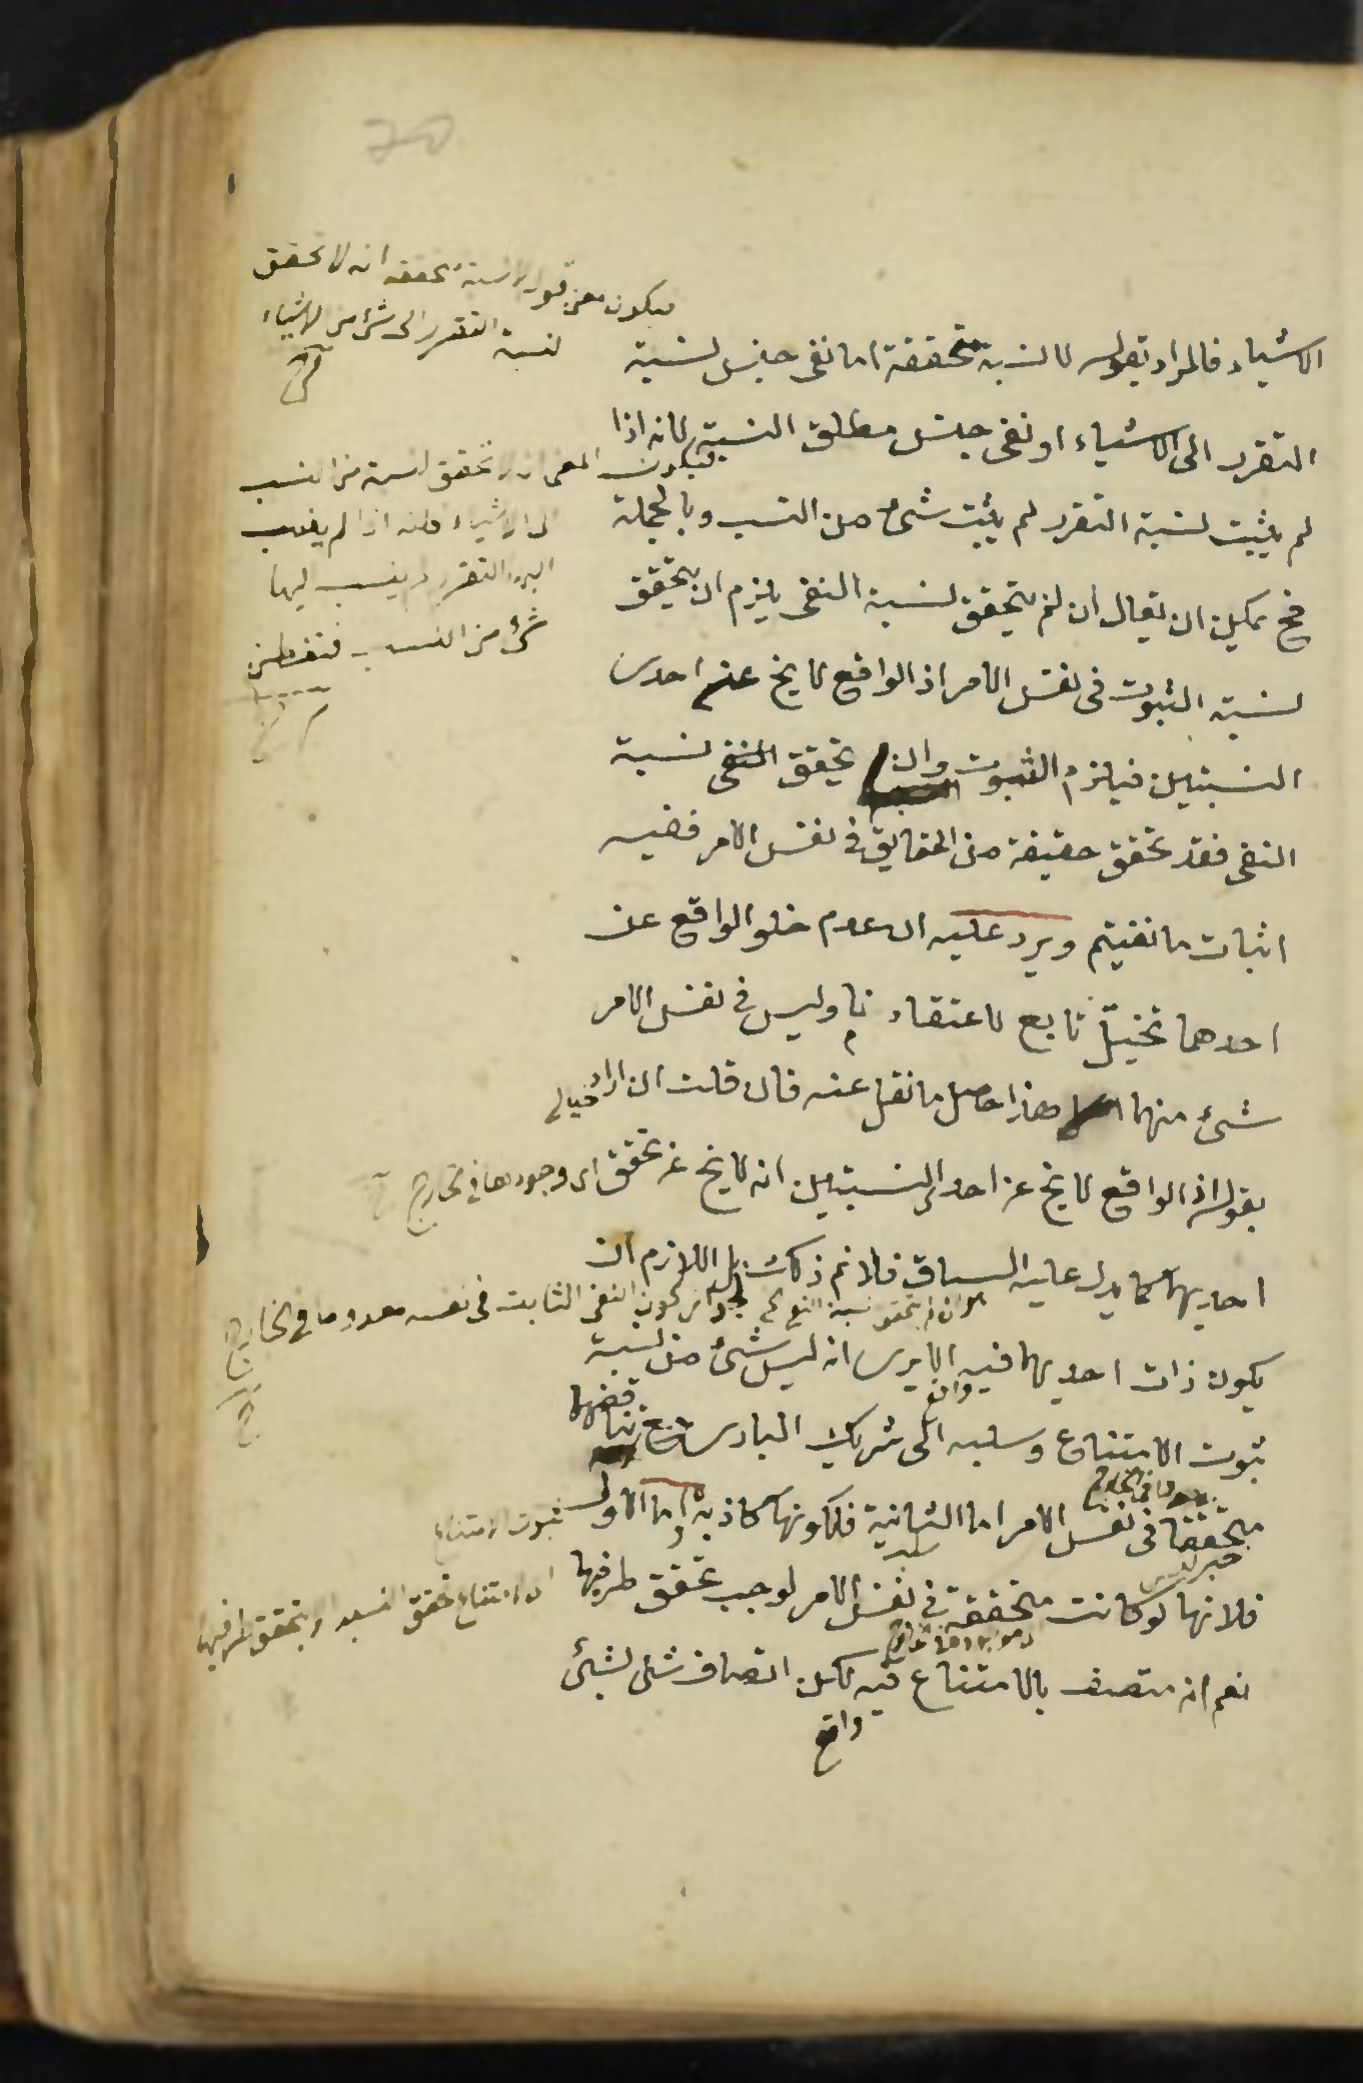 الاشياء فالمراد بقوله لا نسبة متحققة اما نفى جنس نسبة
التقرر الى الاشياء او نفى جنس مطلق النسبة لانه اذا
لم يثبت نسبة التقرر لم يثبت شئ من النسب وبالجملة
فح يمكن ان يقال ان لم يتحقق نسبة النفى يلزم ان يتحقق
نسبة الثبوت فى نفس الامر اذ الواقع لا يخ عن احدى
النسبتين فيلزم الثبوت وان تحقق النفى نسبة
النفى فقد تحقق حقيقة من الحقايق فى نفس الامر ففيه
اثبات ما نفيتم ويرد عليه ان عدم خلو الواقع عن
احدهما تخيل تابع لاعتقادنا وليس فى نفس الامر
شئ منهما هذا حاصل ما نقل عنه قال قلت ان اراد خيالى
بقوله اذ الواقع لا يخ عن احدى النسبتين انه لا يخ عن تحقق اى وجودها فى الخارج
احديهما كما يدل عليه السياق فلا نم ذلك بل اللازم ان
يكون ذات احديهما فيه الا يرى انه ليس شئ من نسبة
واقع
ثبوت الامتناع وسلبه الى شريك البارى مع تناقضهما
متحققا فى نفس الامر اما الثانية فلكونها كاذبة واما الاولى
ثبوت الامتناع
فلانها لو كانت متحققة فى نفس الامر لوجب تحقق طرفيها
نعم انه متصف بالامتناع فيه لكن اتصاف شئ بشئ
واقع
فيكون معنى قوله لا نسبة متحققة انه لا تحقق
لنسبة التقرر الى شئ من الاشياء
فيكون المعنى انه لا تحقق لنسبة من النسب
الى الاشياء فانه اذا لم ينسب
اليه التقرر لم ينسب اليها
شئ من النسب فتفطن
كون النفى الثابت فى نفسه معدوما فى الخارج